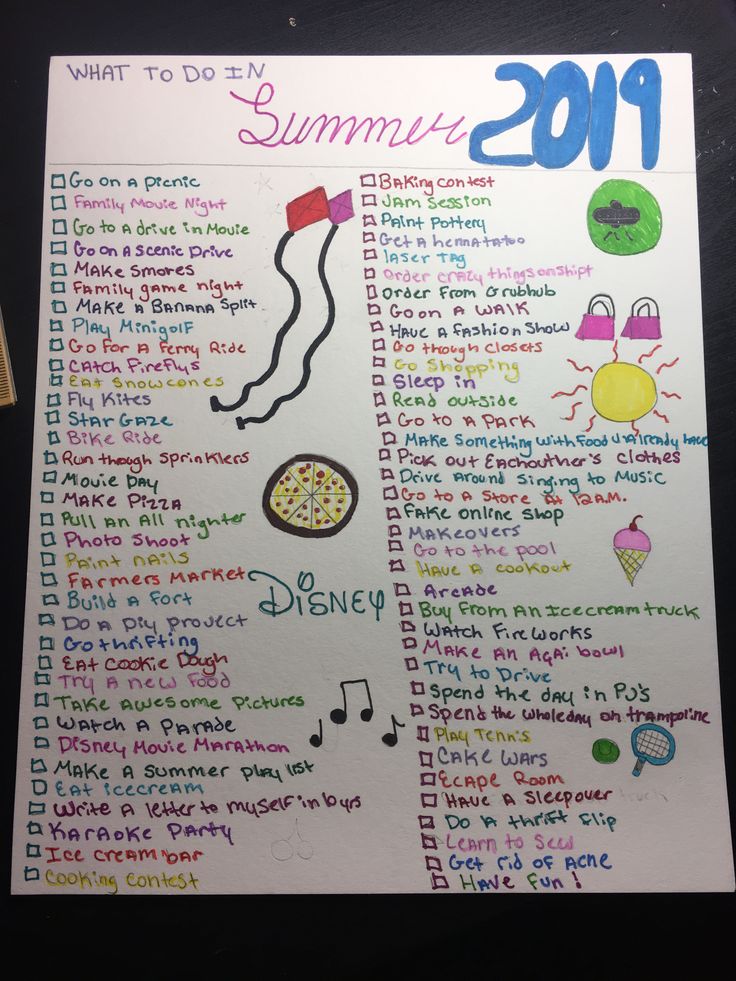 WHAT TO DO IN
Summer 2019
Go on a picnic
Family Movie Night
Go to a drive in Movie
Go on a scenic Drive
Make smores
Family game night
Make a Banana Split
Play Minigolf
Go For a Ferry Ride
Catch Fireflys
Eat Snowcones
Fly Kites
Star Gaze
Bike Ride
Run though Sprinklers
Movie Day
Make Pizza
Pull An All nighter
Photo Shoot
Paint nails
Farmers Market
Build a Fort
Do a Diy project
Go thrifting
Eat Cookie Dough
Try A new Food
Take Awesome Pictures
Watch a Parade
Disney Movie Marathon
Make a summer play list
Eat icecream
Write a letter to myself in 10yrs
Karaoke Party
Ice cream bar
Cooking contest
Disney
Baking contest
Jam Session
Paint Pottery
Get a henna tatoo
laser tag
Order crazy things on shipt
Order From Grubhub
Go on a WALK
Have a fashion show
Go though closets
Go Shopping
Sleep in
Read outside
Go to a Park
Make Something with Food U Already have
Pick out Eachouther's clothes
Drive Around Singing to Music
Go to a Store At 12 A.M.
Fake online shop
Makeovers
Go to the pool
Have a cookout
Arcade
Buy From An Icecream truck
Watch FireWorks
Make An Açai bowl
Try to Drive
Spend the day in PJ's
Spend the whole day on trampoline
Play Tennis
Cake Wars
Ecape Room
Have a Sleepover
truck
Do a thrift flip
Learn to Sew
Get rid of Acne
Have Fun!